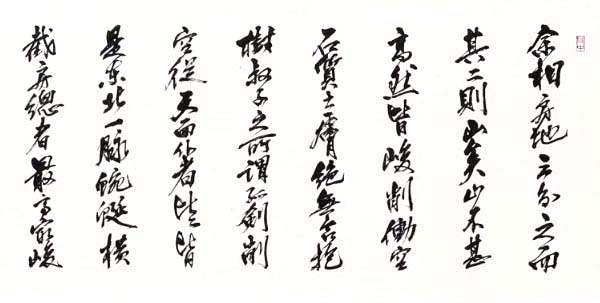 余相房地三分之而
其二則山矣山不甚
高然皆峻削衝空
石質土膚絶無合抱
樹叔子之所謂孤劍削
空從天而仆者比比皆
是東北一脉蜿蜒横
截房總者最高最峻